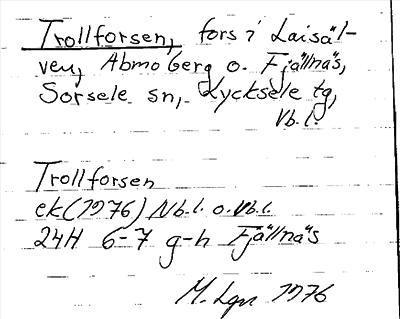 Trollforsen, fors i Laisäl-
ven, Abmoberg o. Fjällnäs,
Sorsele sn, Lycksele tg,
Vb. l.
Trollforsen
ek (1976) Nb. l. o. Vb. l.
24H 6-7 g-h Fjällnäs
M. Lgr 1976